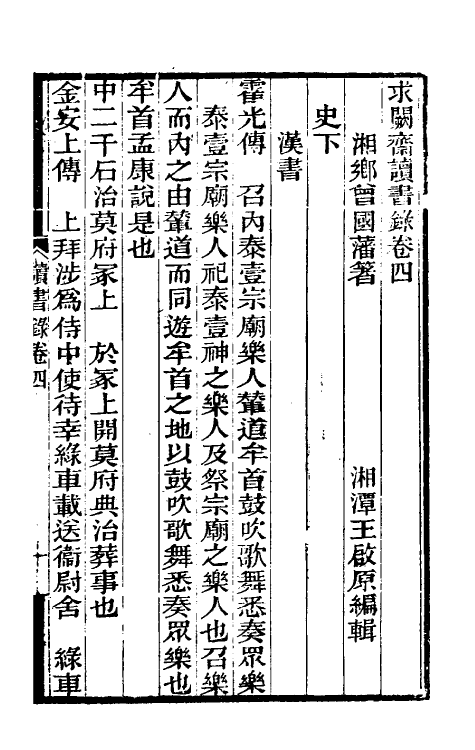 求闕齋讀書錄卷四
湘鄉曾國藩著　湘潭王啟原編輯
史下
漢書
霍光傳　召內泰壹宗廟樂人輦道牟首鼓吹歌舞悉奏眾樂
泰壹宗廟樂人祀泰壹神之樂人及祭宗廟之樂人也召樂
人而內之由輦道而同遊牟首之地以鼓吹歌舞悉奏眾樂也
牟首孟康說是也
中二千石治莫府冢上　於冢上開莫府典治葬事也
金安上傳　上拜涉為侍中使待幸綠車載送衞尉舍　綠車
讀書錄卷四